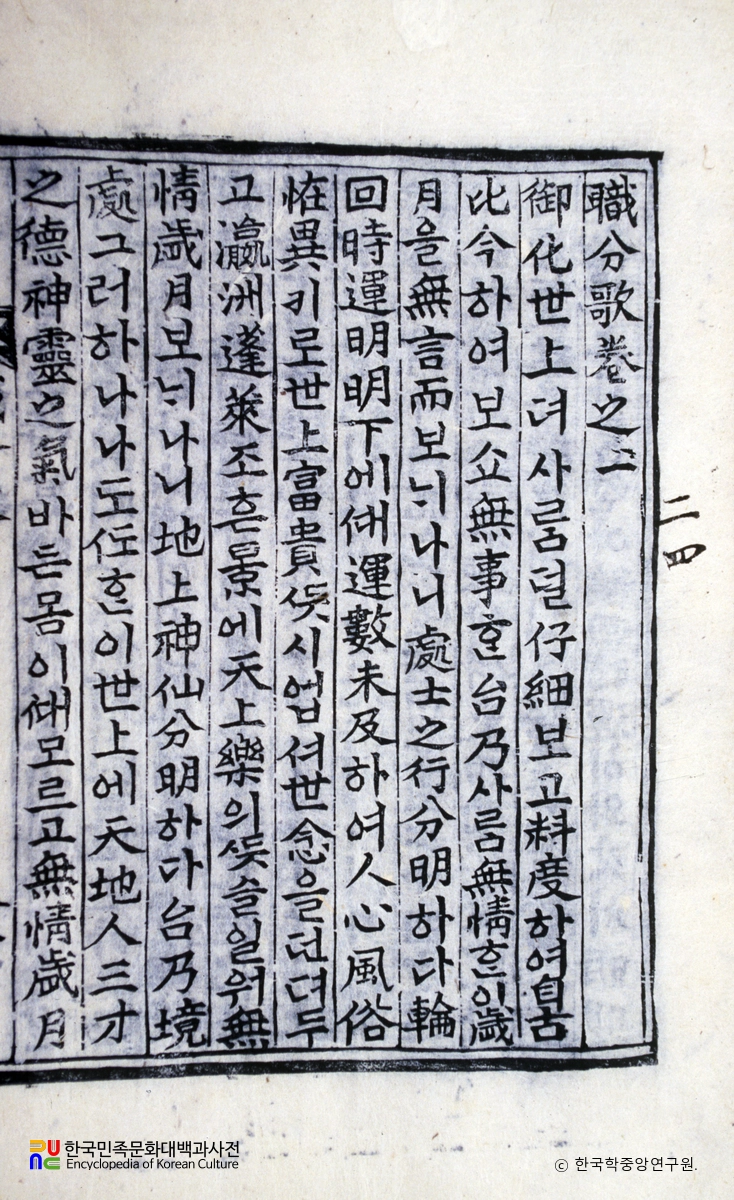 職分歌卷之二
御化世上뎌사ᄅᆞᆷ덜仔細보고料度하여自古
比今하여보쇼無事ᄒᆞᆫ台乃사ᄅᆞᆷ無情ᄒᆞᆫ이歲
月을無言而보ᄂᆡ나니處士之行分明하다輪
回時運明明下에ᄯᅢ運數未及하여人心風俗
恠異키로世上富貴ᄯᅳᆺ시업셔世念을던뎌두
고瀛洲蓬萊조흔景에天上樂의ᄯᅳᆺ슬일워無
情歲月보ᄂᆡ나니地上神仙分明하다台乃境
處그러하나나도ᄯᅩᄒᆞᆫ이世上에天地人三才
之德神靈之氣바든몸이ᄯᅢ모르고無情歲月
二四
한국민족문화대백과사전
Encyclopedia of Korean Culture
ⓒ 한국학중앙연구원.